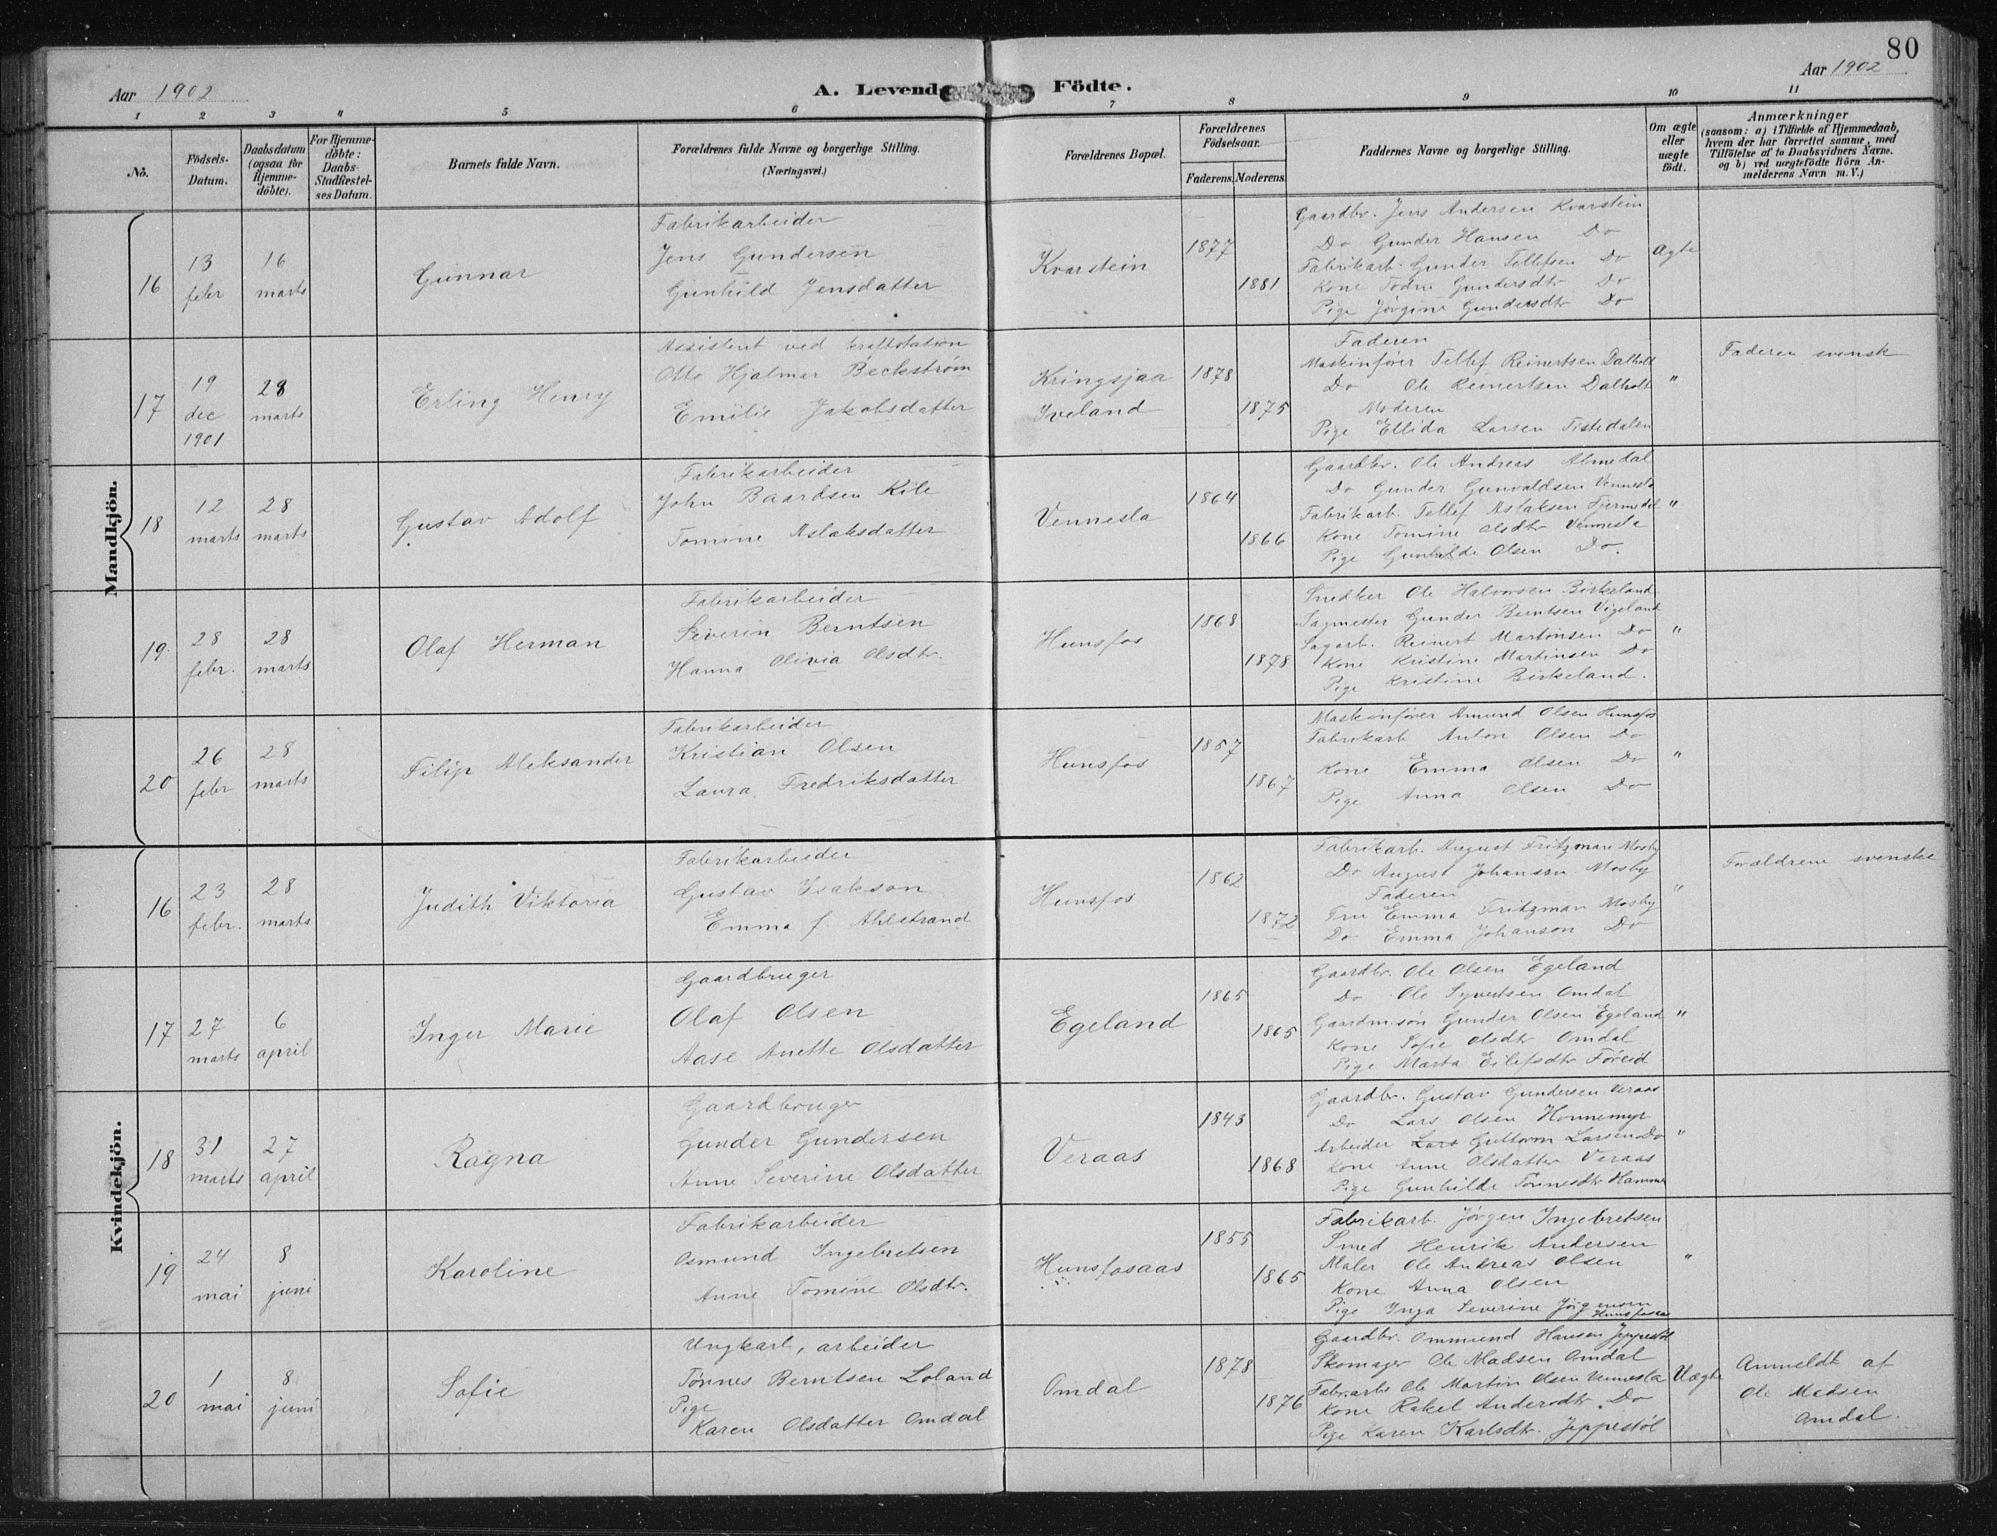 80
Aar 1902
A. Levende
Födte.
Aar 1902
1 2 3 4 5 6 7 8 9 10 11
No.
Födsels-
Datum.
Daabsdatum
(ogsaa for
Hjemme-
döbte).
For Hjemme-
döbte:
Daabs-
Stadfæstel-
ses Datum.
Barnets fulde Navn.
Forældrenes fulde Navne og borgerlige Stilling.
(Næringsvei.)
Forældrenes Bopæl.
Forældrenes
Födselsaar.
Faderens. Moderens.
Faddernes Navne og borgerlige Stilling.
Om ægte
eller
uægte
födt.
Anmærkninger
(saasom: a) i Tilfælde af Hjemmedaab,
hvem der har forrettet samme, med
Tilföielse af to Daabsvidners Navne.
og b) ved uægtefödte Börn An-
melderens Navn m. V.)
Mandkjön.
16
13
febr
16
marts
Gunnar
Fabrikarbeider
Jens Gundersen
Gunhild Jensdatter
Kvarstein
1877
1881
Gaardbr. Jens Andersen Kvarstein
Do Gunder Hansen Do
Fabrikarb. Gunder Tellefsen Do
Kone Todne Gundersdtr Do
Pige Jørgine Gundersdtr Do
Ægte
17
19
dec
1901
28
marts
Erling Henry
Assistent ved kraftstation
Otto Hjalmar Beckstrøm
Emilie Jakobsdatter
Kringsjaa
Iveland
1878
1875
Faderen
Maskinfører Tellef Reinertsen Dalholt
Do Ole Reinertsen Dalholt
Moderen
Pige Ellida Larsen Tistedalen
"
Faderen svensk
18
12
marts
28
marts
Gustav Adolf
Fabrikarbeider
John Baardsen Kile
Tomine Aslaksdatter
Vennesla
1864
1866
Gaardbr. Ole Andreas Almedal
Do Gunder Gunvaldsen Vennesla
Fabrikarb. Tellef Aslaksen
Kone Tomine Olsdtr Vennesla
Pige Gunhilde Olsen Do.
"
19.
28
febr.
28
marts
Olaf Herman
Fabrikarbeider
Severin Berntsen
Hanna Olivia Olsdtr.
Hunsfos
1868
1878
Snedker Ole Halvorsen Birkeland
Sagmester Gunder Berntsen Vigeland
Sagarb. Reinert Martinsen Do
Kone Kristine Martinsen Do
Pige Kristine Birkeland.
"
20
26
febr
28
marts
Filip Aleksander
Fabrikarbeider
Kristian Olsen
Laura Fredriksdatter
Hunsfos
1857
1867
Maskinfører Amund Olsen Hunsfos
Fabrikarb Anton Olsen Do
Kone Emma Olsen Do
Pige Anna Olsen Do
"
Kvindekjön.
16
23
febr.
28
marts
Judith Viktoria
Fabrikarbeider
Gustav Isakson
Emma f. Ahlstrand
Hunsfos
1862
1872
Fabrikarb. August Fritzman Mosby
Do August Johanson Mosby
Faderen
Fru Emma Fritzman Mosby
Do Emma Johanson Do
"
Forældrene svenske
17
27
marts
6
april
Inger Marie
Gaardbruger
Olaf Olsen
Aase Anette Olsdatter
Egeland
1865
1865
Gaardbr. Ole Olsen Egeland
Do Ole Syvertsen Omdal
Gaardmsøn Gunder Olsen Egeland
Kone Sofie Olsdtr Omdal
Pige Marta Eilefsdtr
"
18
31
marts
27
april
Ragna
Gaardbruger
Gunder Gundersen
Anne Severine Olsdatter
Veraas
1843
1868
Gaardbr. Gustav Gundersen Veraas
Do Lars Olsen Honnemyr
Arbeider Lars Guttorm Larsen Do
Kone Anne Olsdatter Veraas
Pige Gunhilde Tønnesdtr
"
19
24
mai
8
juni
Karoline
Fabrikarbeider
Osmund Ingebretsen
Anne Tomine Olsdtr.
Hunsfosaas
1855
1865
Fabrikarb. Jørgen Ingebretsen
Smed Henrik Andersen
Maler Ole Andreas Olsen
Kone Anna Olsen
Pige Inga Severine Jørgensen
Hunsfosaas
"
20
1
mai
8
juni
Sofie
Ungkarl, arbeider
Tønnes Berntsen Loland
Pige
Karen Olsdatter Omdal
Omdal
1878
1876
Gaardbr. Ommund Hansen Jeppestøl
Skomager Ole Madsen Omdal
Fabr.arb. Ole Martin Olsen Vennesla
Kone Rakel Andersdtr. Do
Pige Karen Karlsdtr. Jeppestøl
Uægte
Anmeldt af
Ole Madsen
Omdal.